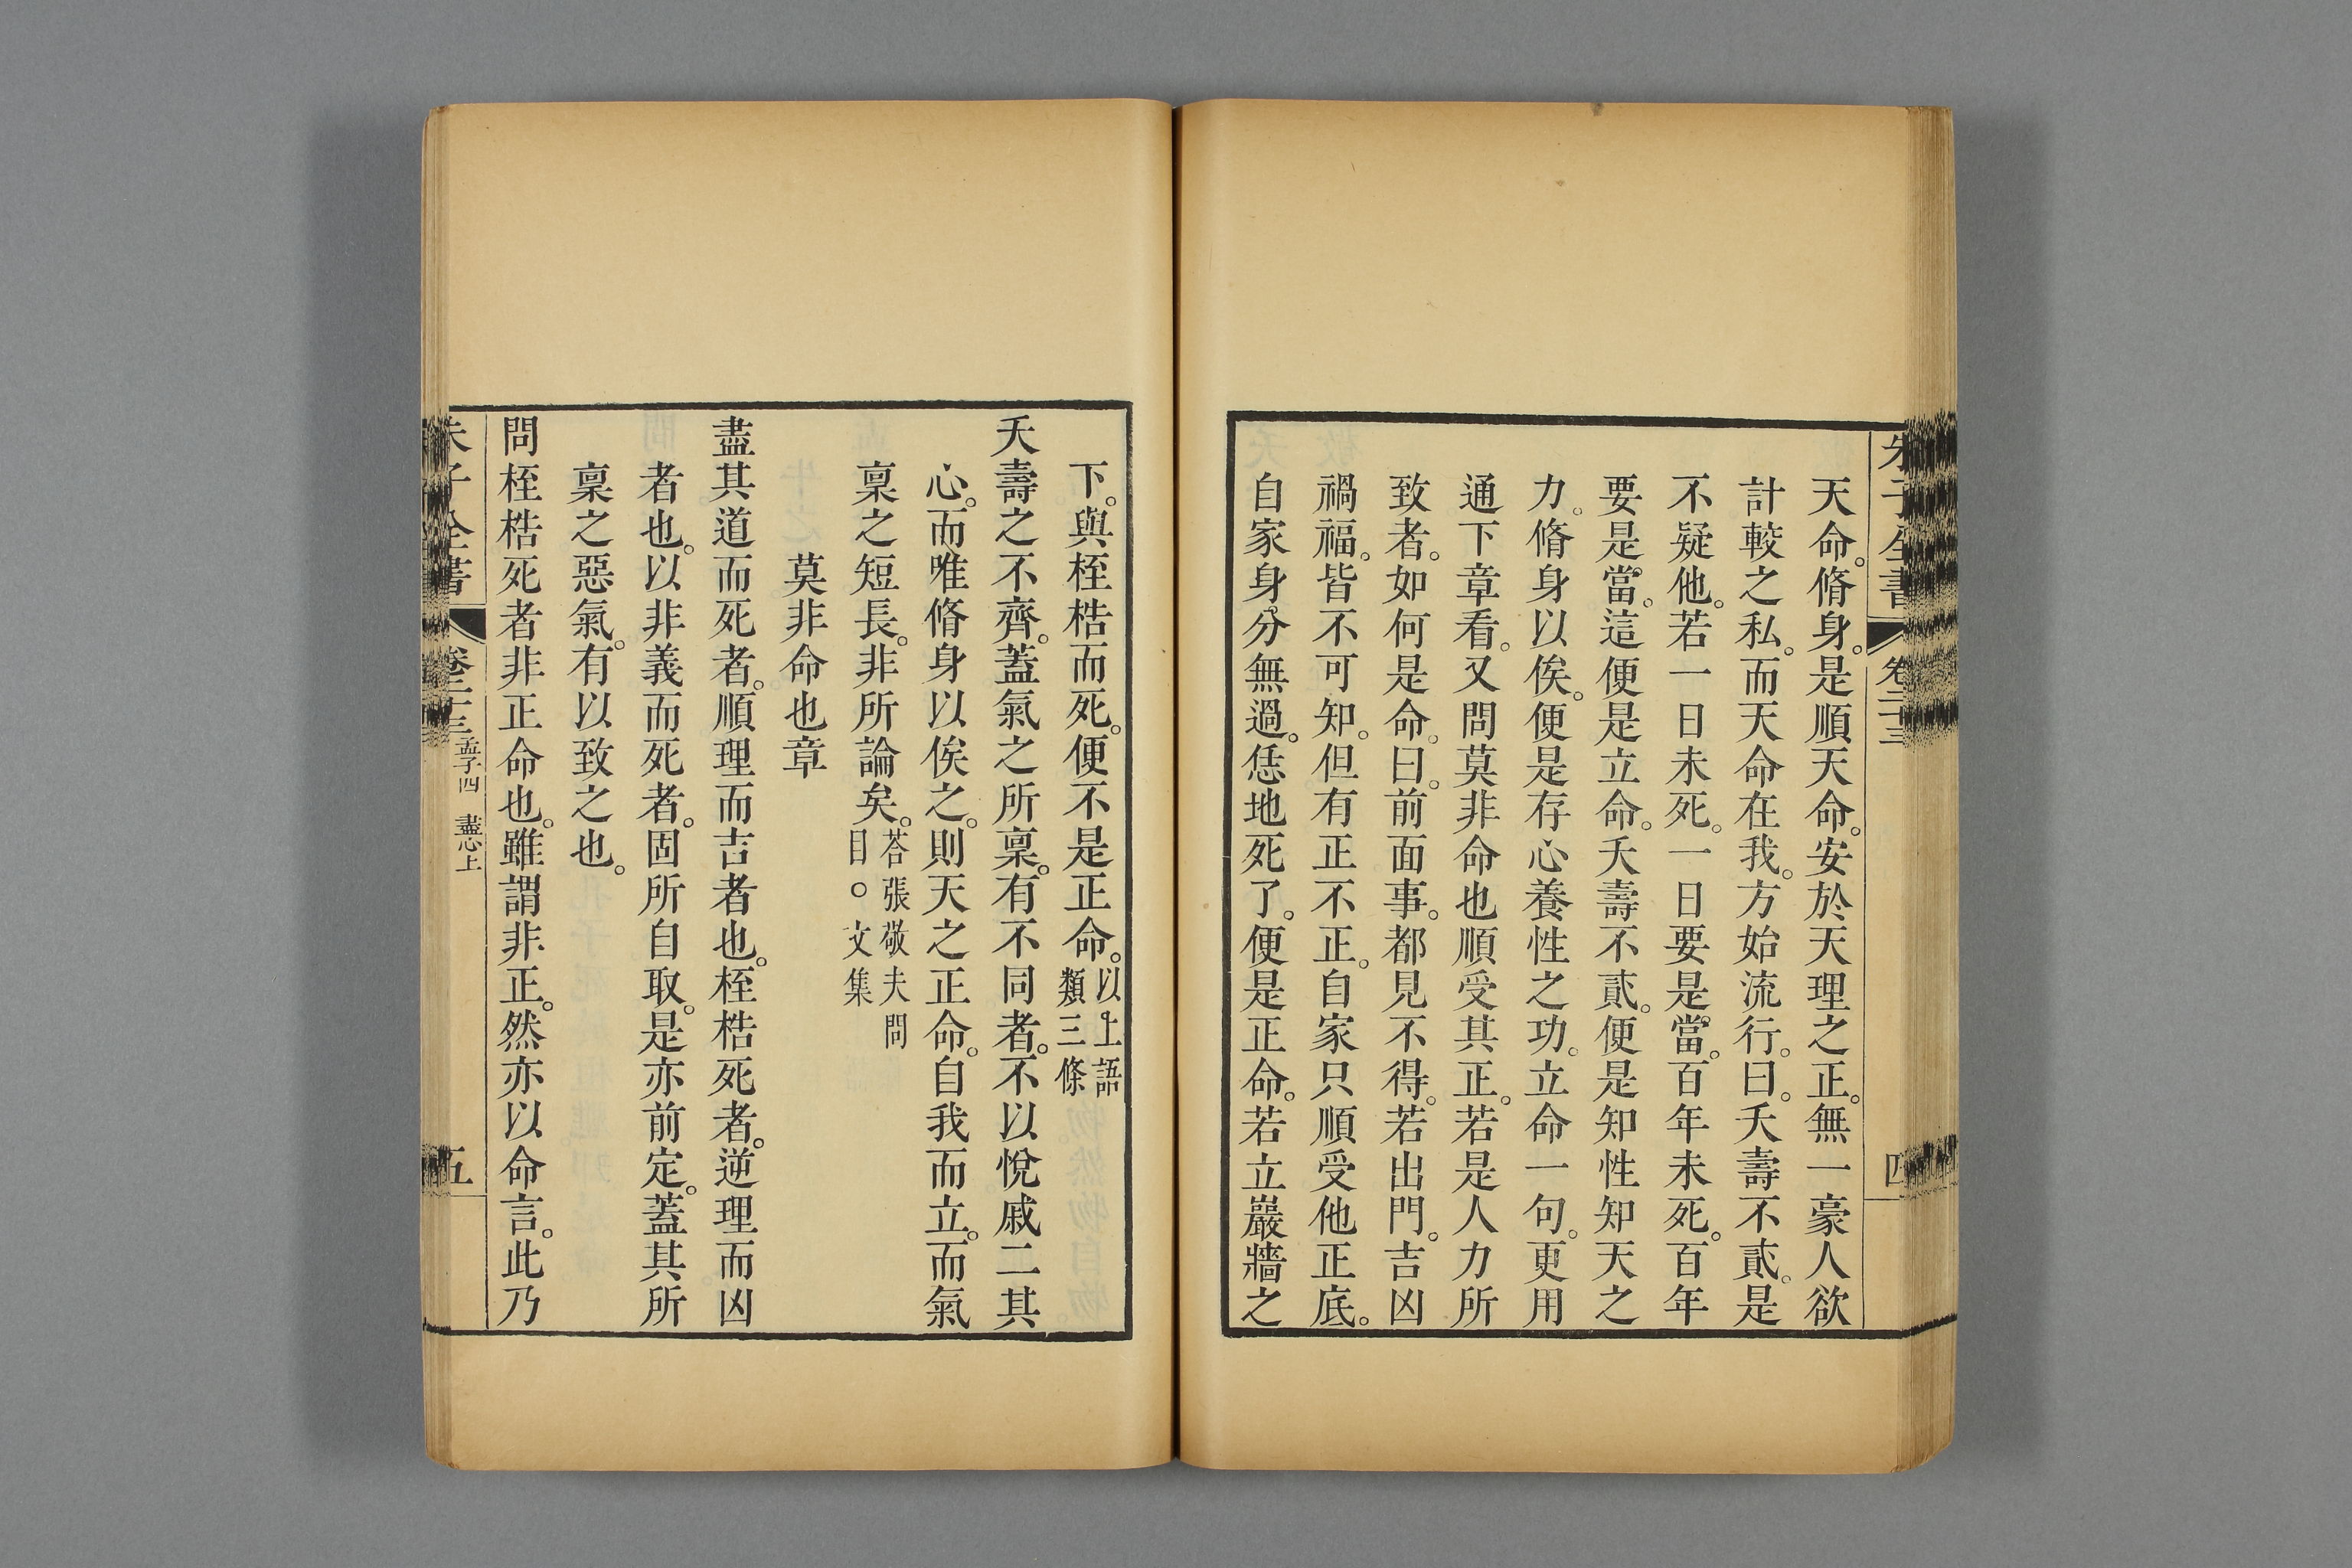 朱子全書 卷二十三 四
天命。脩身。是順天命。安於天理之正。無一豪人欲
計較之私。而天命在我。方始流行。曰。夭壽不貳。是
不疑他。若一日未死。一日要是當。百年未死。百年
要是當。這便是立命。夭壽不貳。便是知性知天之
力。脩身以俟。便是存心養性之功。立命一句。更用
通下章看。又問莫非命也順受其正。若是人力所
致者。如何是命。曰。前面事。都見不得。若出門。吉凶
禍福。皆不可知。但有正不正。自家只順受他正底。
自家身分無過。恁地死了。便是正命。若立巖牆之
下。與桎梏而死。便不是正命。以上語
類三條
夭壽之不齊。蓋氣之所稟。有不同者。不以悅戚二其
心。而唯脩身以俟之。則天之正命。自我而立。而氣
稟之短長。非所論矣。荅張敬夫問
目。文集
莫非命也章
盡其道而死者。順理而吉者也。桎梏死者。逆理而凶
者也。以非義而死者。固所自取。是亦前定。蓋其所
稟之惡氣。有以致之也。
問桎梏死者非正命也。雖謂非正。然亦以命言。此乃
朱子全書 卷二十三 孟子四 盡心上 五